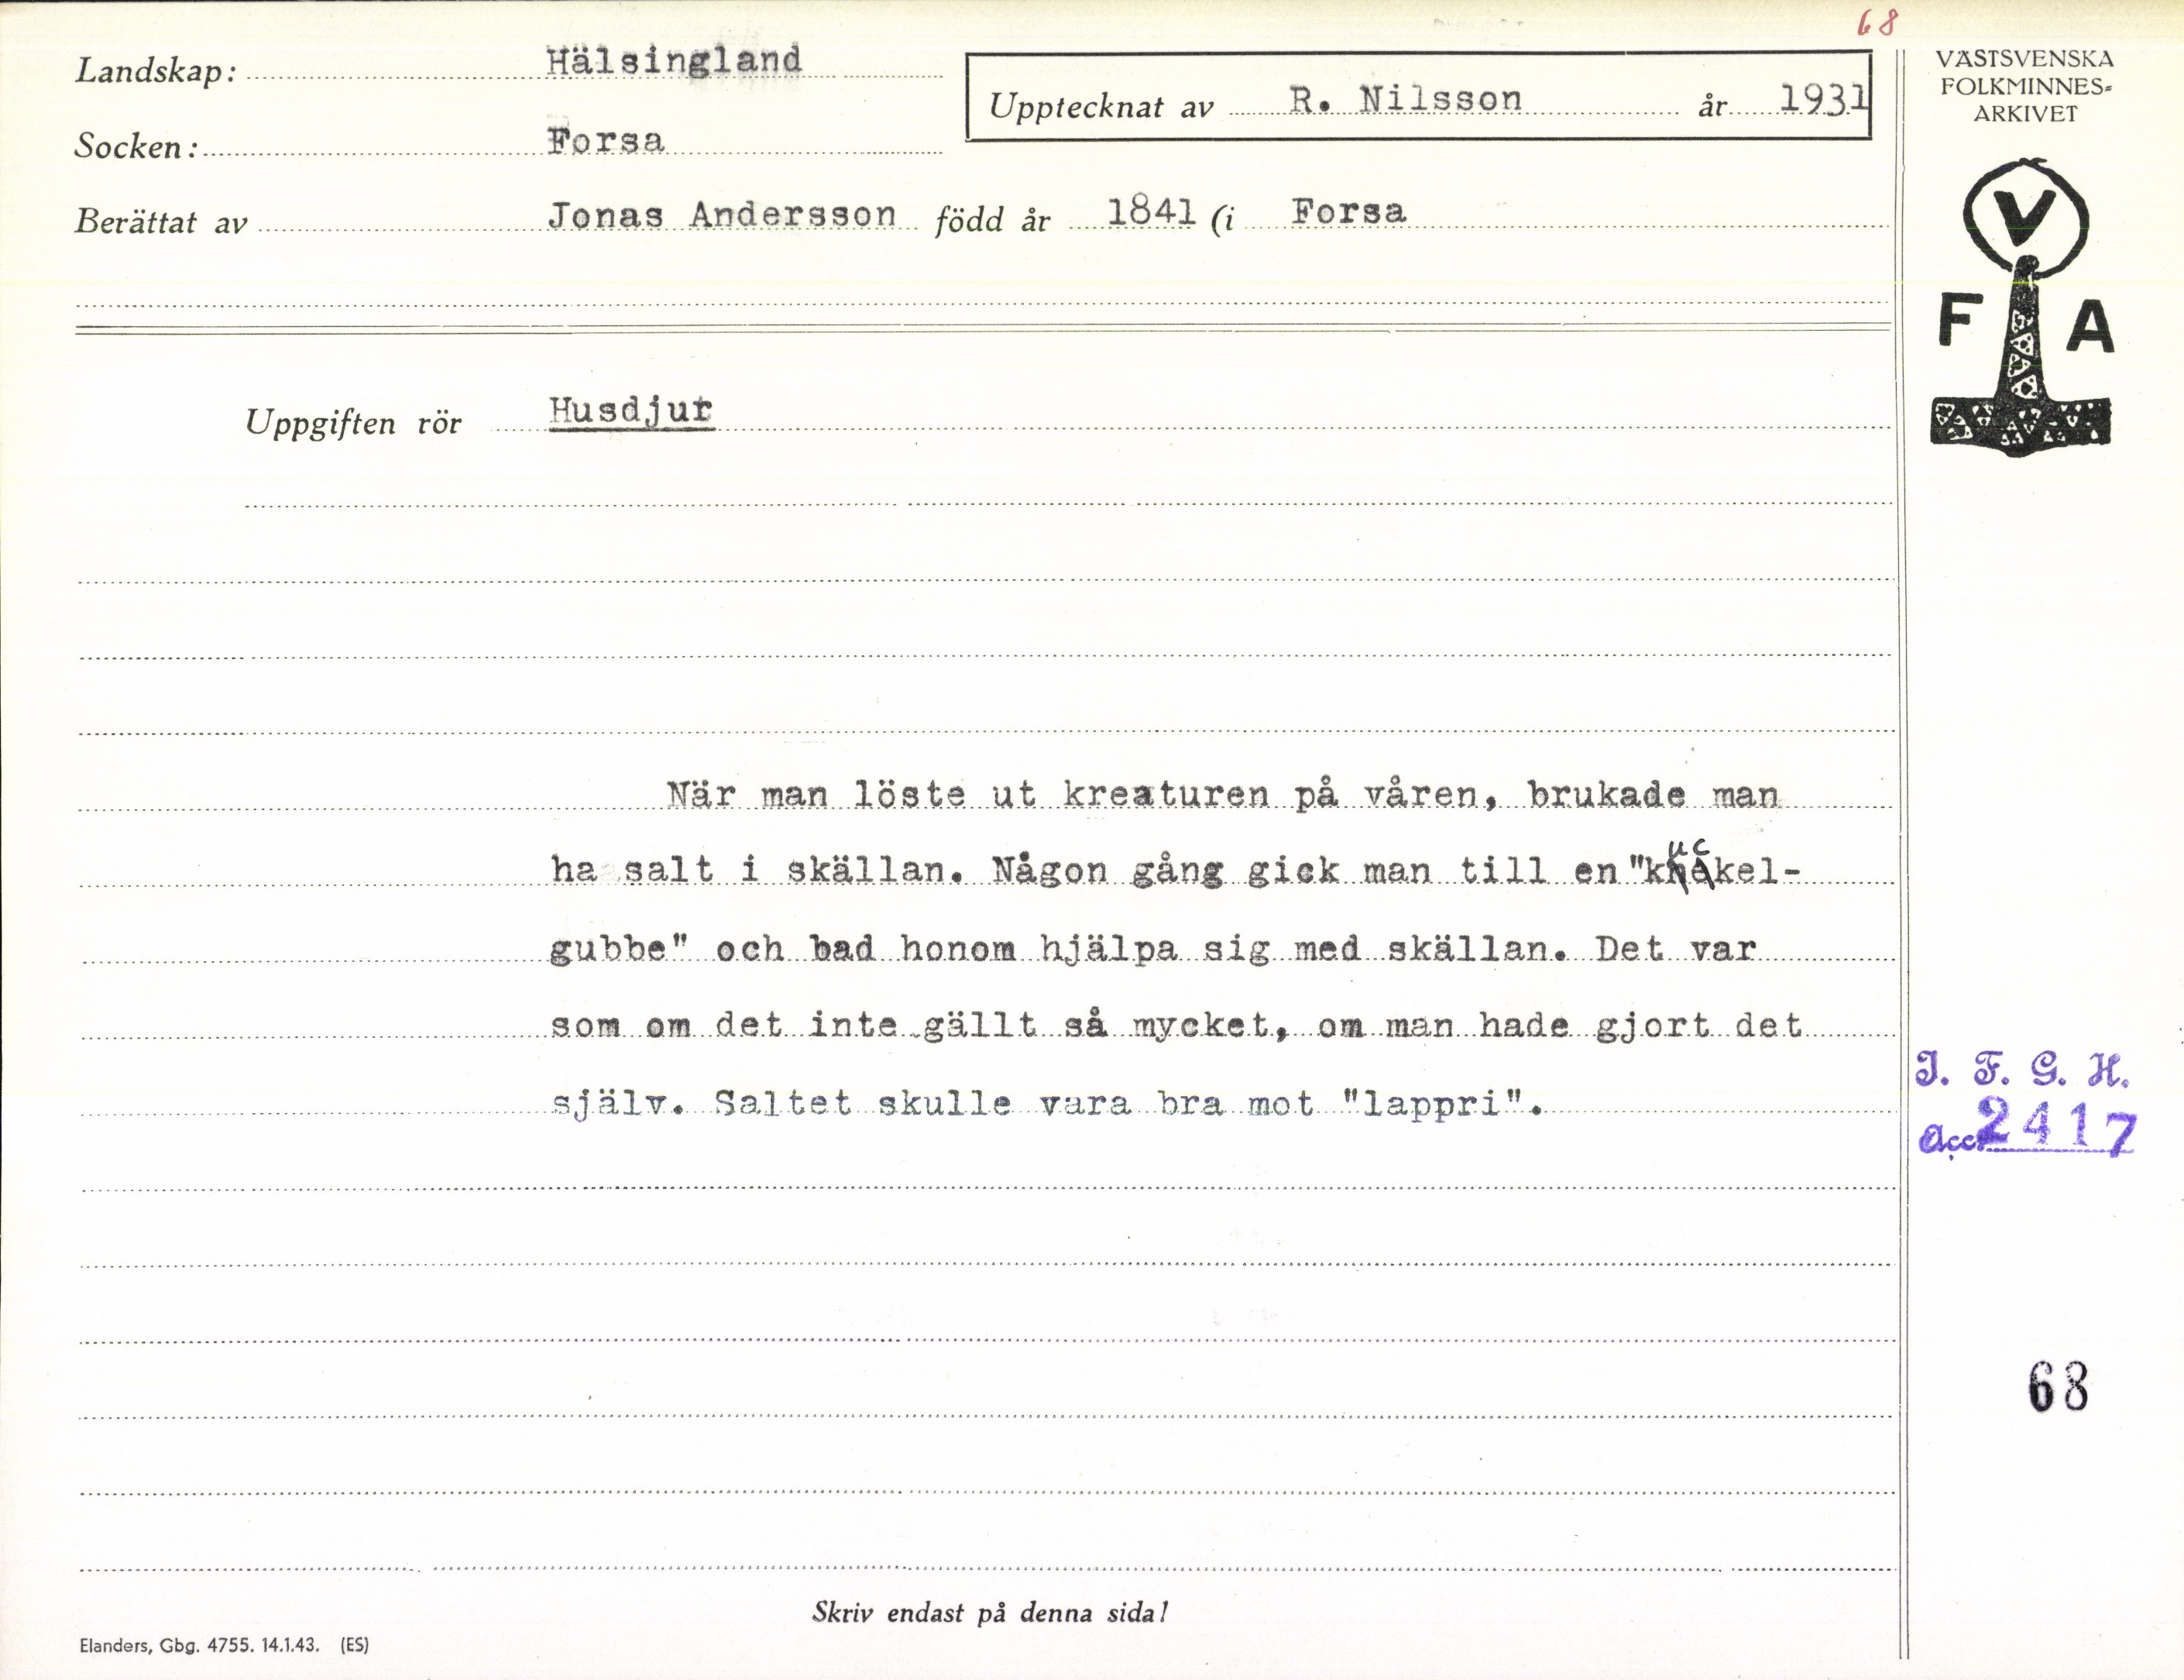 68
Landskap: Hälsingland
Upptecknat av R. Nilsson år 1931
Socken: Forsa
Berättat av Jonas Andersson född år 1841 (i Forsa
VÄSTSVENSKA
FOLKMINNES=
ARKIVET
V
F A
Uppgiften rör Husdjur
När man löste ut kreaturen på våren, brukade man
ha salt i skällan. Någon gång gick man till en "kuckel-
gubbe" och bad honom hjälpa sig med skällan. Det var
som om det inte gällt så mycket, om man hade gjort det
själv. Saltet skulle vara bra mot "lappri".
I. F. G. H.
Acc. 2417
68
Skriv endast på denna sida!
Elanders, Gbg. 4755. 14.1.43. (ES)